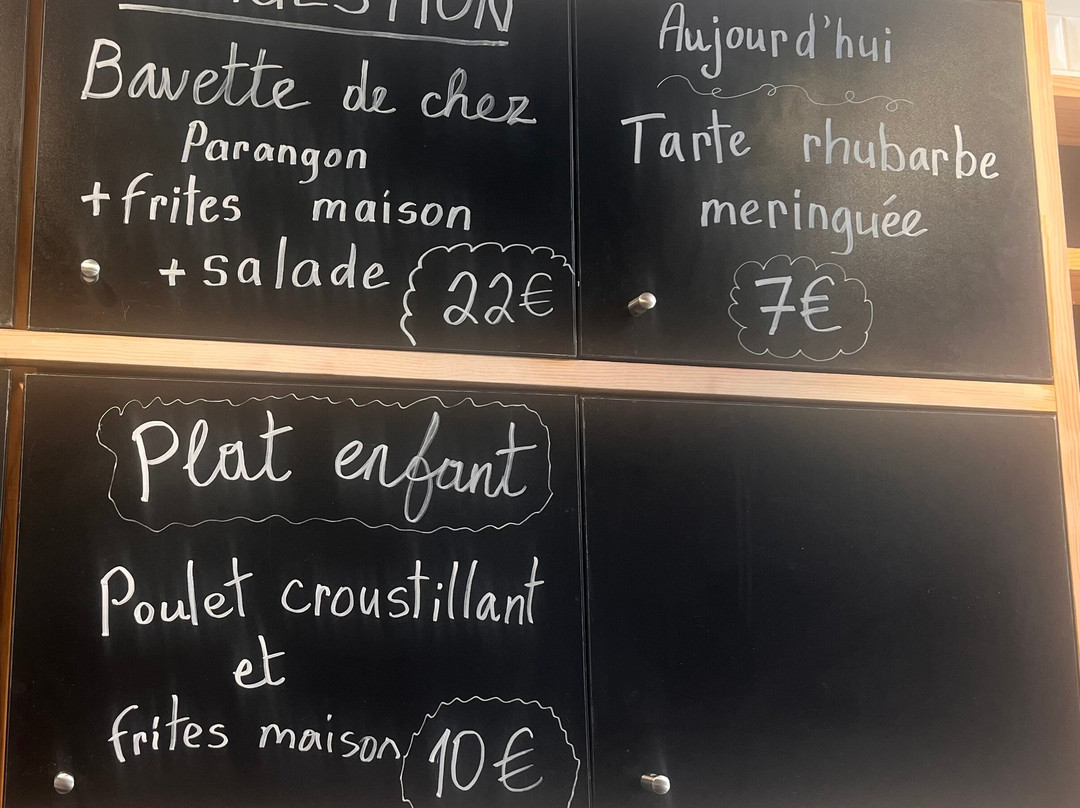 Bavette de chez
Parangon
+ frites maison
+ salade 22€
Aujourd'hui
Tarte rhubarbe
meringuée
7€
Plat enfant
Poulet croustillant
et
frites maison 10€